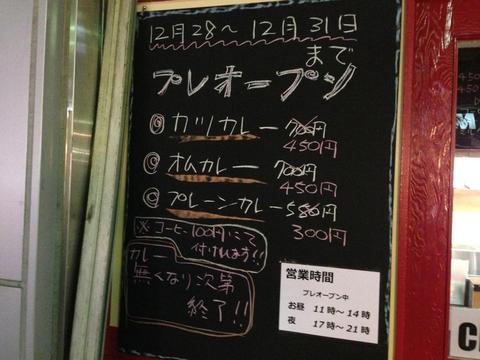 12月28〜12月31日
まで
プレオープン
◎カツカレー 700円
450円
◎オムカレー 700円
450円
◎プレーンカレー 580円
300円
※コーヒー100円にて
付けれます!!
カレー
無くなり次第
終了!!
営業時間
プレオープン中
お昼 11時〜14時
夜 17時〜21時